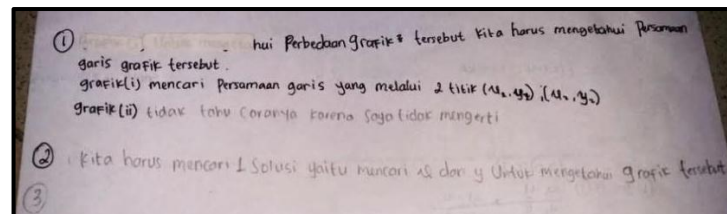 ① hui Perbedaan grafik tersebut kita harus mengetahui Persamaan
garis grafik tersebut.
grafik(i) mencari Persamaan garis yang melalui 2 titik
grafik(ii) tidak tahu caranya karena saya tidak mengerti
② Kita harus mencari 1 solusi yaitu mencari x dan y Untuk mengetahui grafik tersebut
③